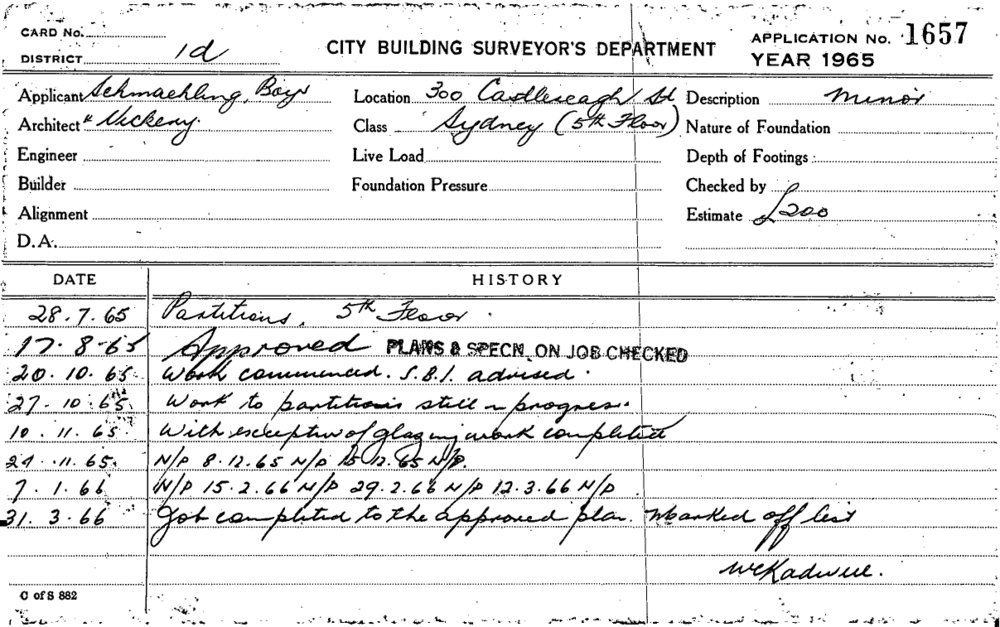 CARD No.
DISTRICT 1d
CITY BUILDING SURVEYOR'S DEPARTMENT
APPLICATION No. 1657
YEAR 1965
Applicant Schmaehling, Boys
Architect & Vickery.
Engineer
Builder
Alignment
D.A.
Location 300 Castlereagh St
Class Sydney (5th Floor)
Live Load
Foundation Pressure
Description Minor
Nature of Foundation
Depth of Footings
Checked by
Estimate £200
DATE HISTORY
28.7.65 Partitions, 5th Floor.
17.8.65 Approved PLANS & SPECN. ON JOB CHECKED
20.10.65 Work commenced. S.B.I. advised.
27.10.65 Work to partitions still in progress.
10.11.65 With exception of glazing work completed
.11.65. N/P 8.12.65 N/P 15.12.65 N/P.
7.1.66 N/P 15.2.66 N/P 29.2.66 N/P 12.3.66 N/P
31.3.66 Job completed to the approved plan. Marked off list
C of S 882